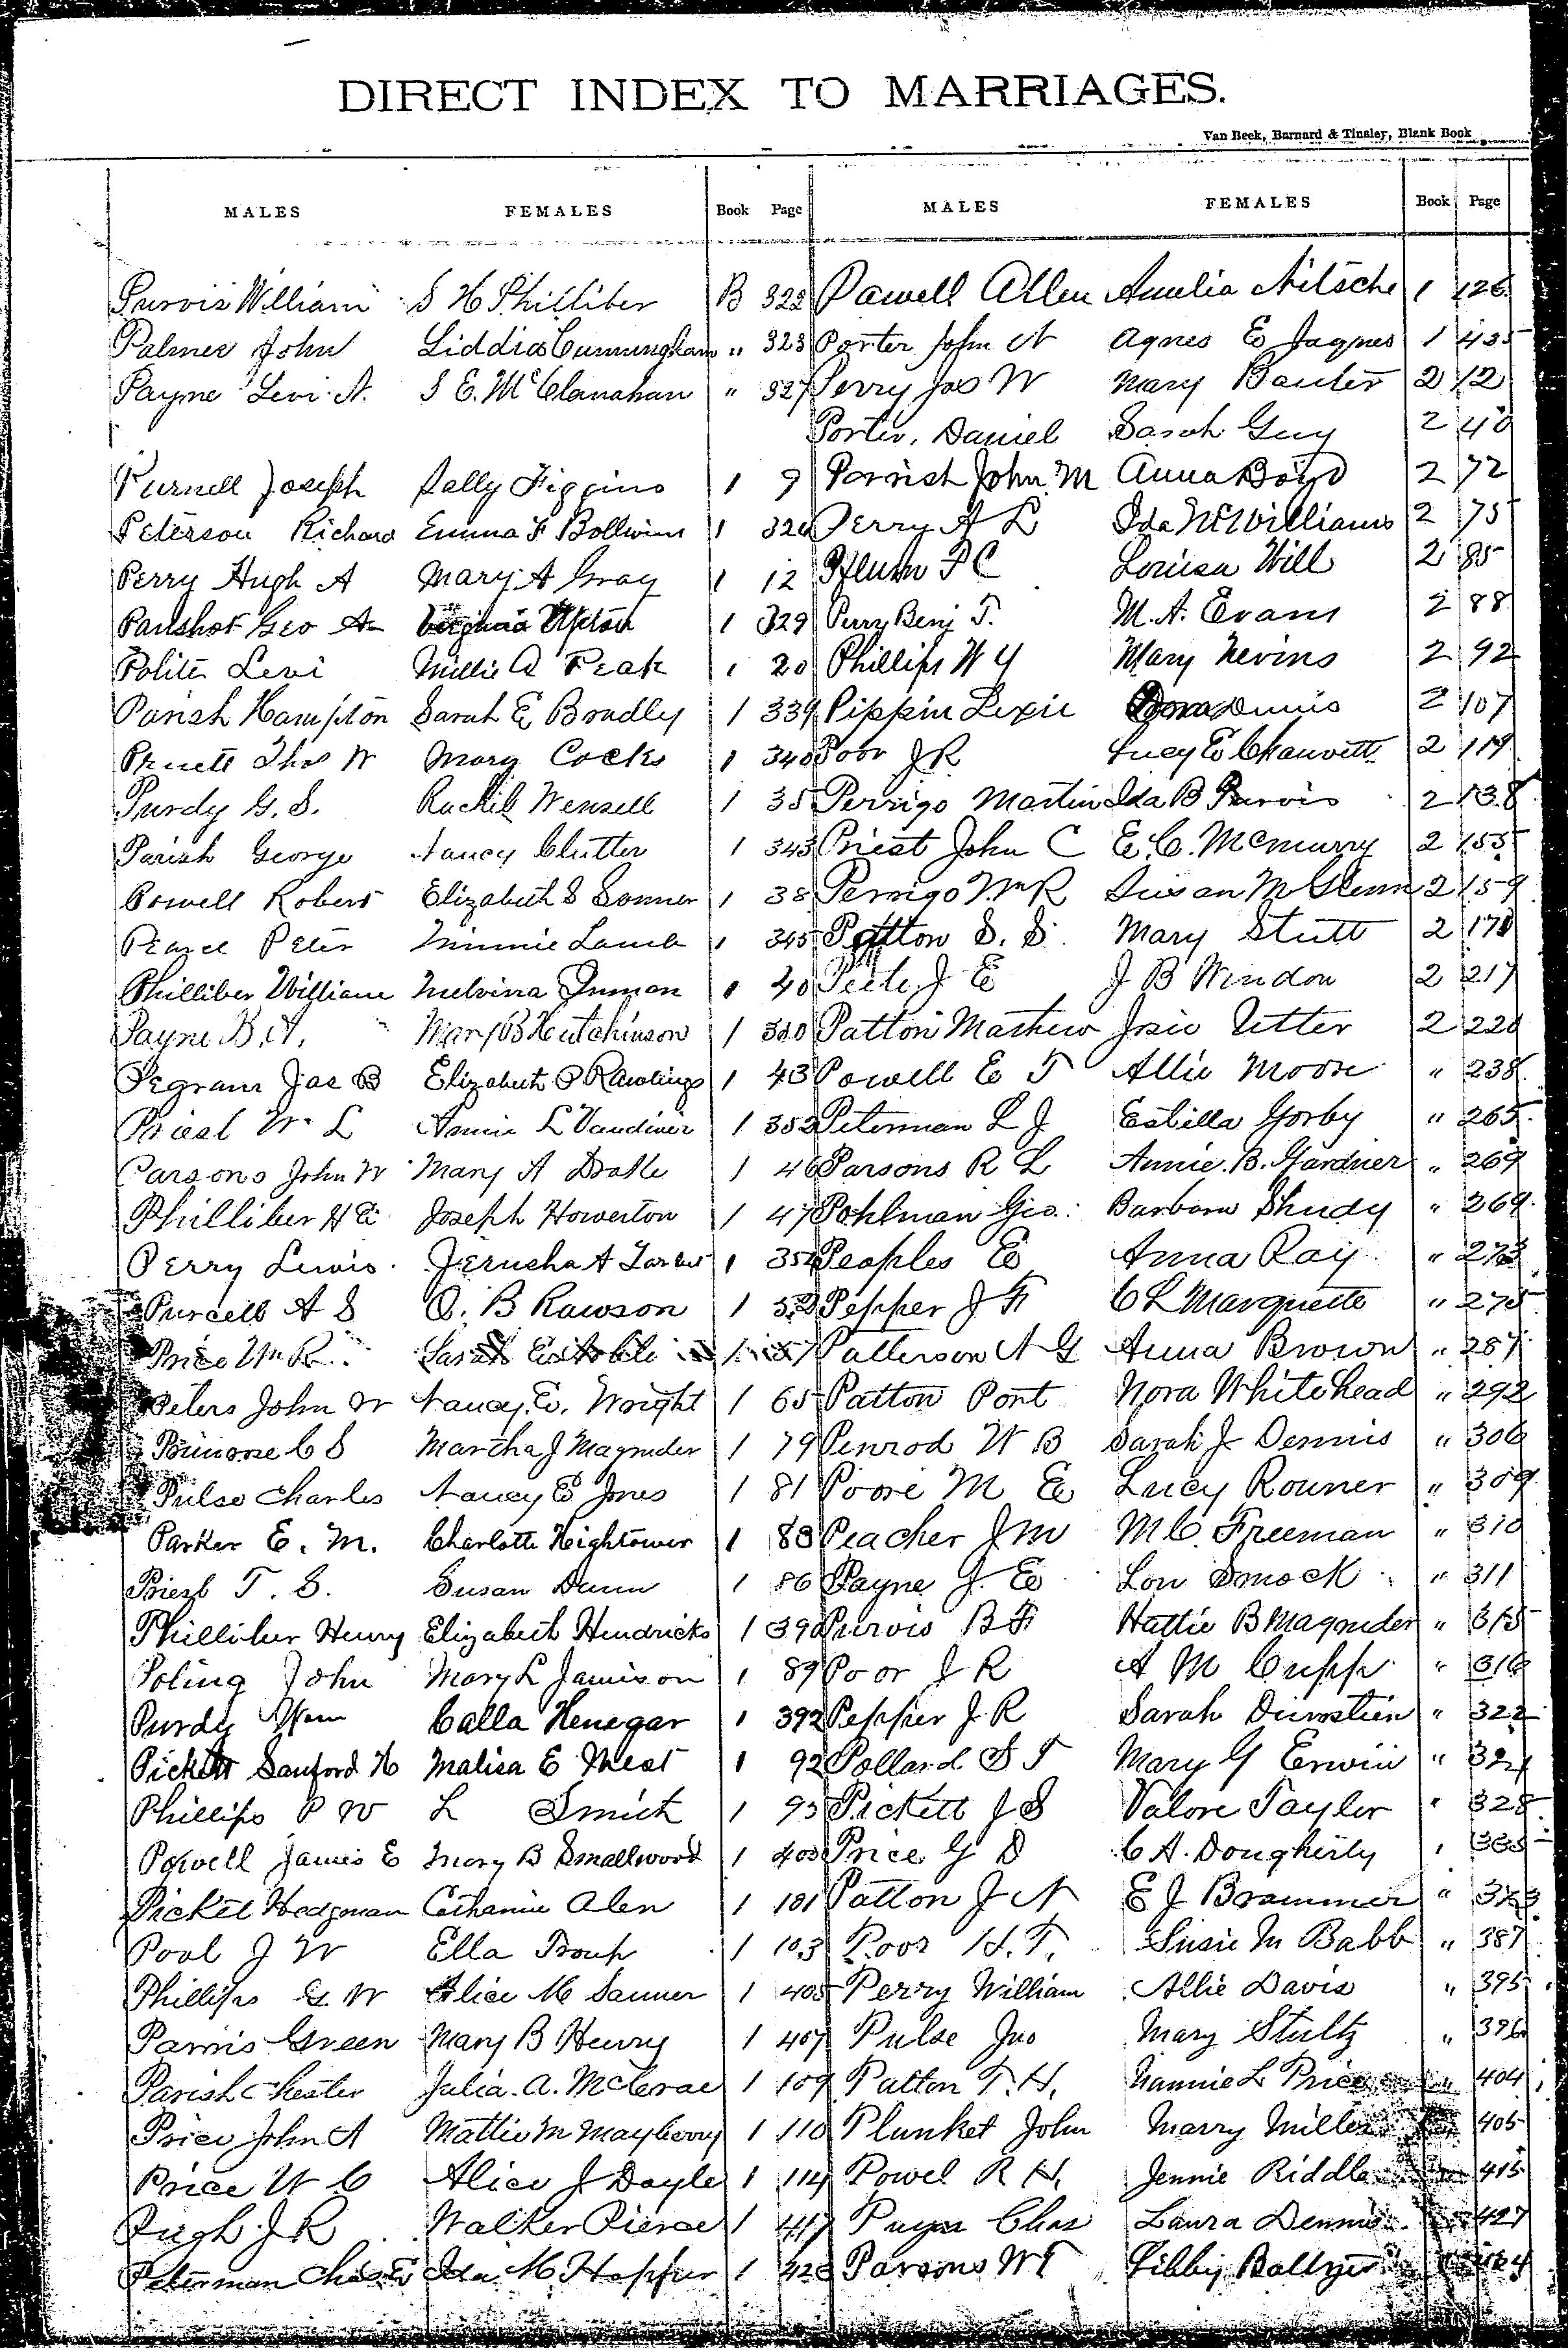 DIRECT INDEX TO MARRIAGES.
Van Beek, Barnard & Tinsley, Blank Book
MALES FEMALES Book Page MALES FEMALES Book Page
Purvis William S H Philliber B 322 Powell Allen Amelia Nitsche 1 126
Palmer John Liddia Cunningham " 323 Porter John N Agnes E Jaynes 1 435
Payne Levi N. S E. McClanahan " 327 Perry Jas W Mary Bauter 2 12
Porter, Daniel Sarah Guy 2 40
Purnell Joseph Sally Figgins 1 9 Parrish John M Anna Boyd 2 72
Peterson Richard Emma F Bollwins 1 326 Perry A L Ida McWilliams 2 75
Perry Hugh A Mary A Gray 1 12 Pflum F C Louisa Will 2 85
Panshot Geo A Virginia Upton 1 329 Perry Benj T. M. A. Evans 2 88
Polite Levi Millie A Peak 1 20 Phillips W Y Mary Nevins 2 92
Parish Hampton Sarah E Bradley 1 339 Pippin Lexie Dennis 2 107
Pruett Thos W Mary Cocks 1 340 Poor J R Lucy E Chauvett 2 119
Purdy G. S. Rachel Wensell 1 35 Perrigo Martin Ida B Purvis 2 138
Parish George Nancy Clutter 1 343 Priest John C E. C. McMurry 2 155
Powell Robert Elizabeth S Sonner 1 38 Perrigo Wm R Susan M Glenn 2 159
Pearce Peter Minnie Lamb 1 345 Patton S. S. Mary Stutt 2 170
Philliber William Melvina Inman 1 40 Peele J E J B Windon 2 217
Payne B. A. Mary B Hutchinson 1 350 Patton Mathew Josie Utter 2 220
Pegram Jas B Elizabeth P Rawlings 1 43 Powell E T Allie Moore " 238
Priest Wm L Annie L Vandiver 1 352 Peterman L J Estella Gorby " 265
Parsons John W Mary A Drake 1 46 Parsons R L Annie. B. Gardner " 269
Philliber H E Joseph Howerton 1 47 Pohlman Geo. Barbara Shudy " 269
Perry Lewis Jerusha A 1 354 Peoples E Anna Ray " 273
Purcell A S O. B Rawson 1 52 Pepper J F C L Marquette " 275
Price Wm R. Sarah E 1 57 Patterson N G Anna Brown " 287
Peters John W Nancy E. Wright 1 65 Patton Port Nora Whitehead " 292
Primrose C S Martha J Magruder 1 79 Penrod W B Sarah J Dennis " 306
Pulse Charles Nancy E Jones 1 81 Poore M E Lucy Rouner " 309
Parker E. M. Charlotte Hightower 1 83 Peacher J M M C. Freeman " 310
Priest T. S. Susan Dunn 1 86 Payne J. E Lou Smock " 311
Philliber Henry Elizabeth Hendricks 1 390 Purvis B F Hattie B Magruder " 315
Poling John Mary L Jamison 1 89 Poor J R A M Cupp " 316
Purdy Wm Calla Henegar 1 392 Pepper J R Sarah Durnstien " 322
Pickett Sanford H Malisa E West 1 92 Pollard S T Mary G Erwin " 324
Phillips P W L Smith 1 95 Pickett J S Valore Taylor " 328
Powell James E Mary B Smallwood 1 400 Price G D C A. Dougherty
Picket Hedgman Catharine Alen 1 101 Patton J N E J Brammer "
Pool J W Ella Troup 1 103 Poor H. T. Susie M Babb " 387
Phillips G W Alice M Sanner 1 405 Perry William Allie Davis " 395
Parris Green Mary B Henry 1 407 Pulse Jno Mary Stultz " 396
Parish Chester Julia. A. McCrae 1 109 Patton T. H. Nannie L Price " 404
Price John A Mattie M Mayberry 1 110 Plunket John Marry Miller 405
Price W C Alice J Doyle 1 114 Powel R H. Jennie Riddle 415
Pugh J R Walker Pierce 1 417 Chas Laura Dennis 427
Peterman Chas E Ida M Hopper 1 428 Parsons W T Libby